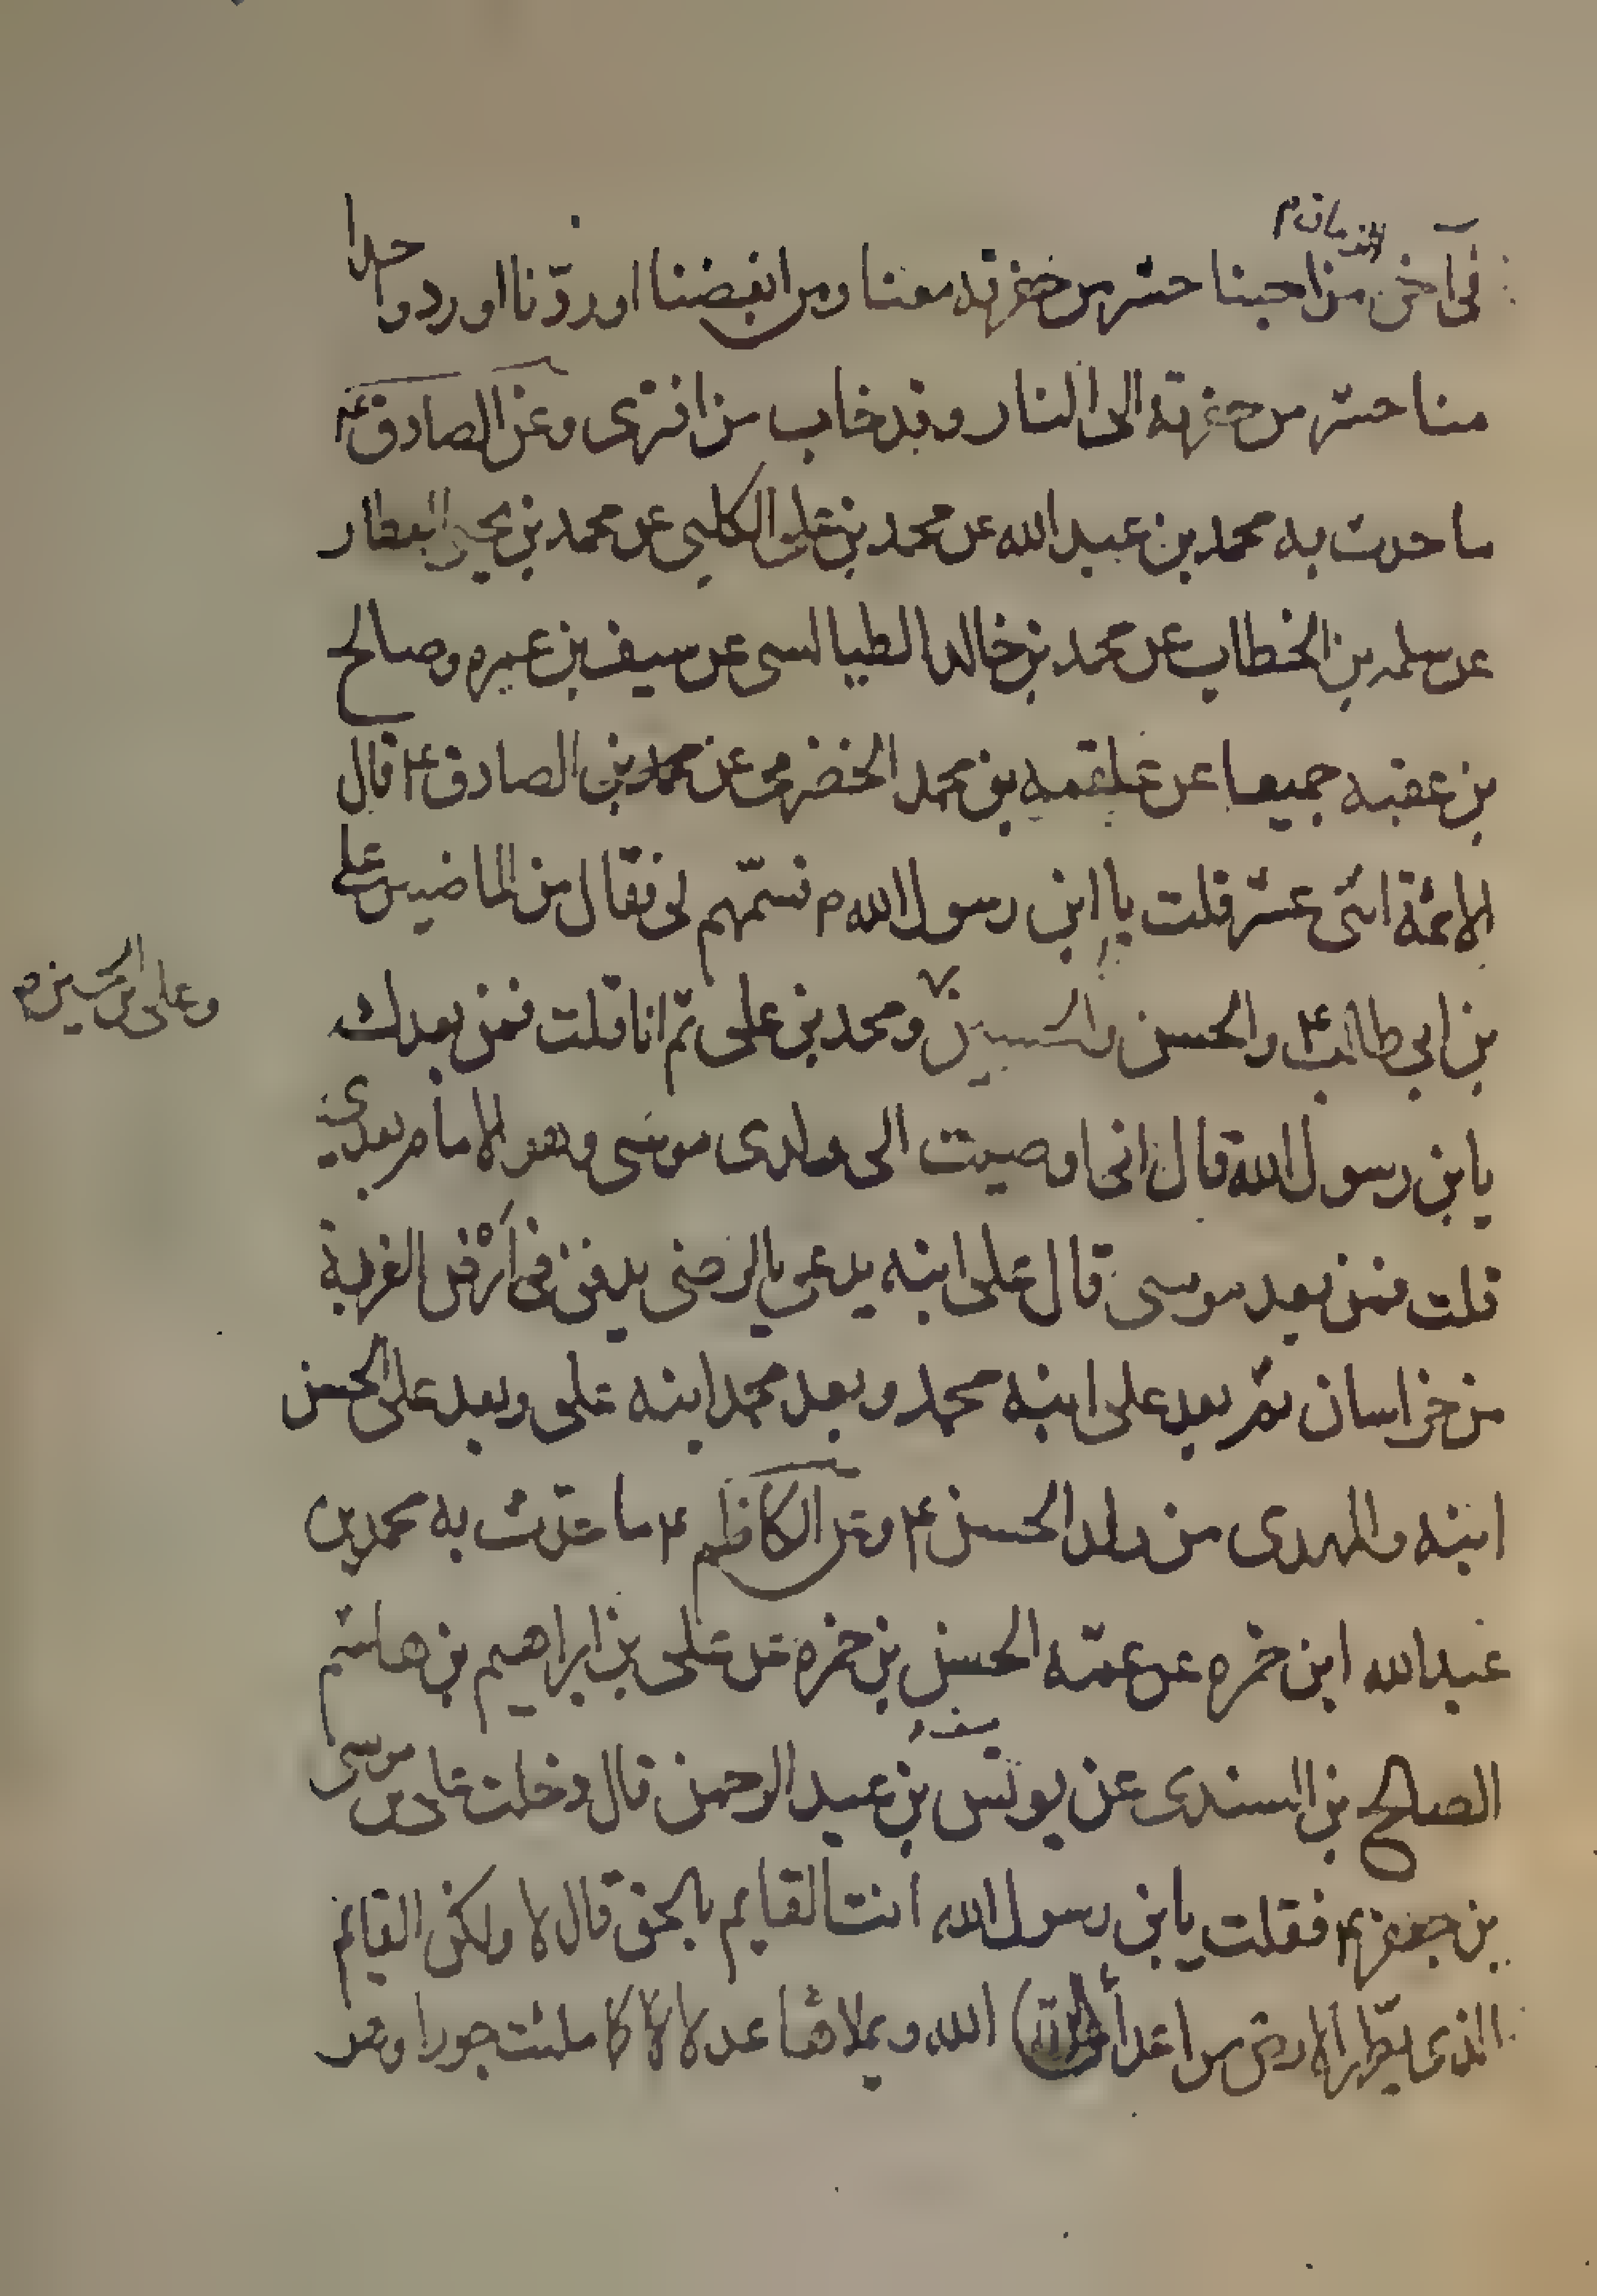 الزمان م
في آخر من احبنا حشر من حفرته معنا ومن ابغضنا او ردّنا او رد واحدا
منا حشر من حفرته الى النار وقد خاب من افترى وعن الصادق ع
ما حدث به محمد بن عبد الله عن محمد بن على الكليي عن محمد بن يحيى العطار
عن سلمه بن الخطاب عن محمد بن خالد الطيالسى عن سيف بن عميره وصالح
بن عقبه جميعا عن علقمه بن محمد الخضرمى عن محمد بن الصادق ع قال
الائمة اثنى عشر قلت يا ابن رسول الله م نسّمهم لى فقال من الماضيين على
بن ابى طالب ع والحسن والحسين ومحمد بن على ثم انا قلت فمن بعدك
وعلى بن الحسين م
يابن رسول الله قال انى اوصيت الى ولدى موسى وهو الامام بعدى
قلت فمن بعد موسى قال على ابنه يدعى بالرضى يدفن فى ارْض الغربة
من خراسان ثم بعد على ابنه محمد وبعد محمد ابنه على وبعد على الحسن
ابنه والمهدى من ولد الحسن ع وعن الكاظم ع ما حدّث به محمد بن
عبد الله ابن حمزه عن عمّه الحسن بن حمزه عن على بن ابراهيم بن هاشم
الصالح بن السندى عن يونس بن عبد الرحمن قال دخلت على موسى
بن جعفر ع فقلت يابن رسول الله انت القايم بالحق قال لا ولكن القايم
الذى يطّهر الارض من اعداء الله ويملاها عدلا كا ملئت جورا وقد